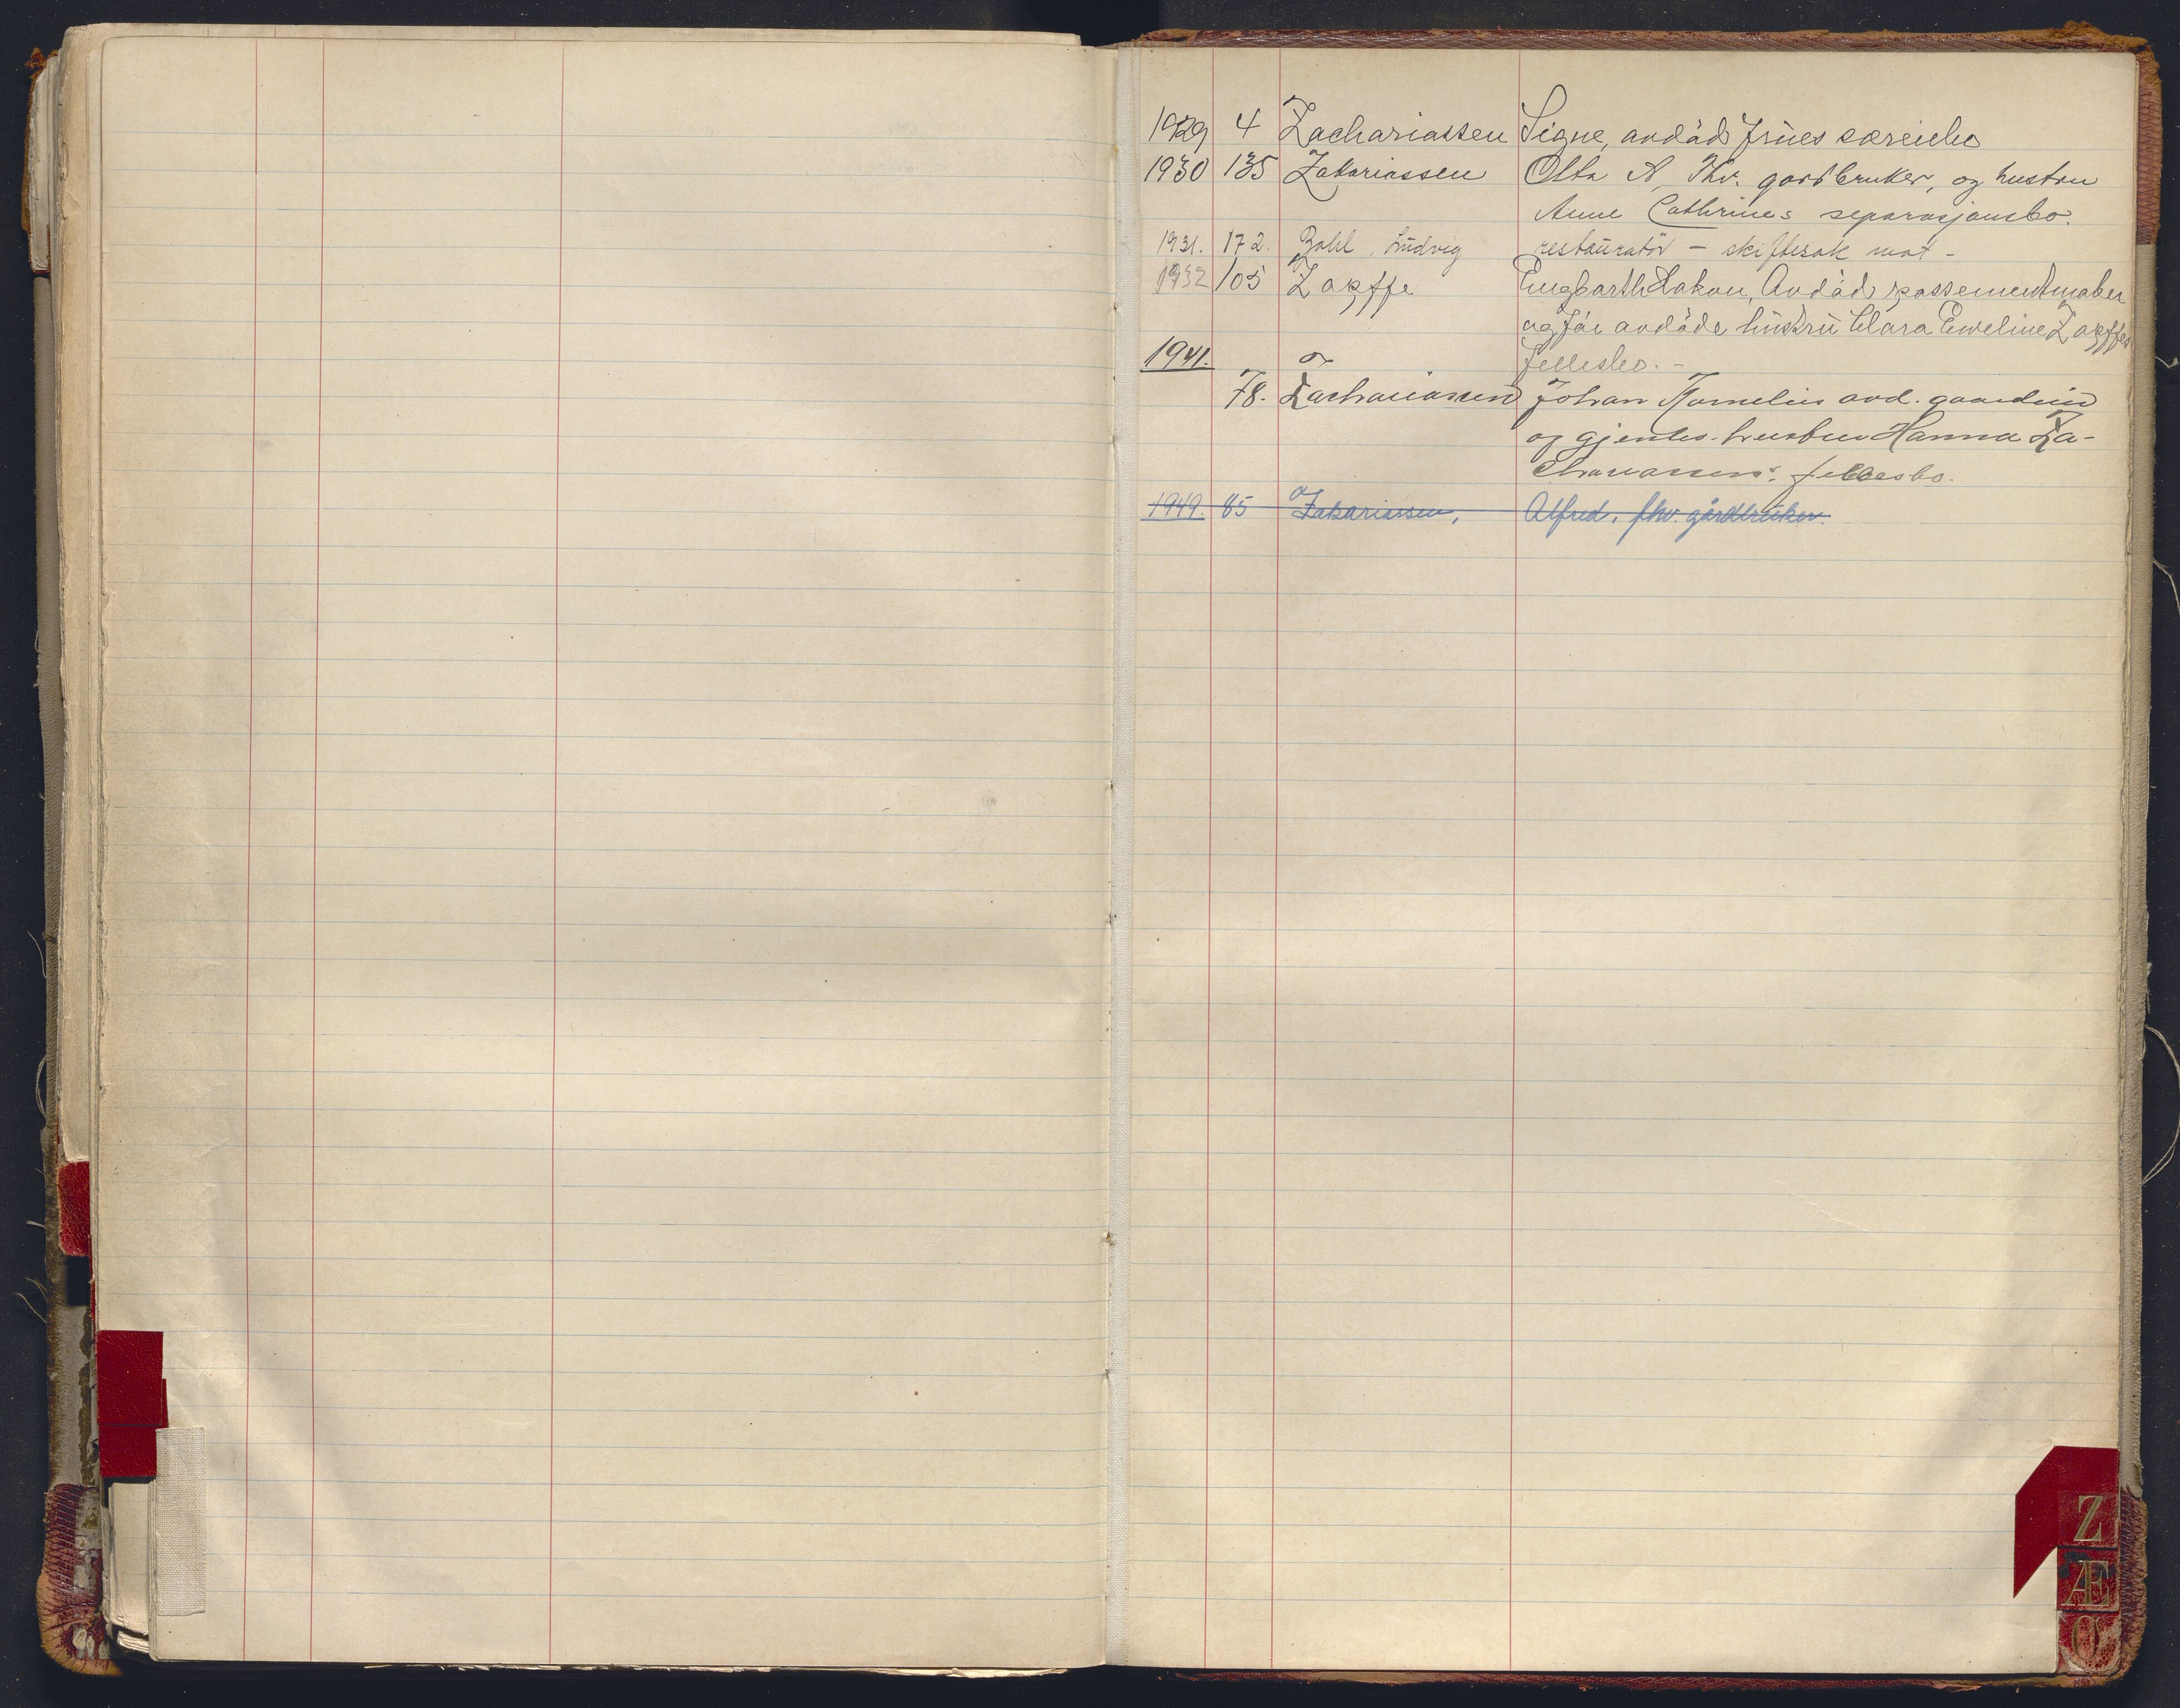 1929 4 Zachariassen Signe, avdöd frues særeiebo
1930 135 Zakariassen Otto A, fhv. gårdbruker, og hustru
Anne Cathrines separasjonsbo.
1931. 172. Zahl, Ludvig restauratör – skiftesak mot –
1932 105 Zapffe Hakon, Avdöd possementmaker
og før avdöde hustru Clara Eveline Zapffes
fellesbo. –
1941.
78. Zachariassen Johan Kornelius avd. og gjenlev. hustru Hanna Za-
chariassens fellesbo.
1949. 85 Zakariassen, Alfred, fhv. gårdbruker.
Z
Æ
Ø